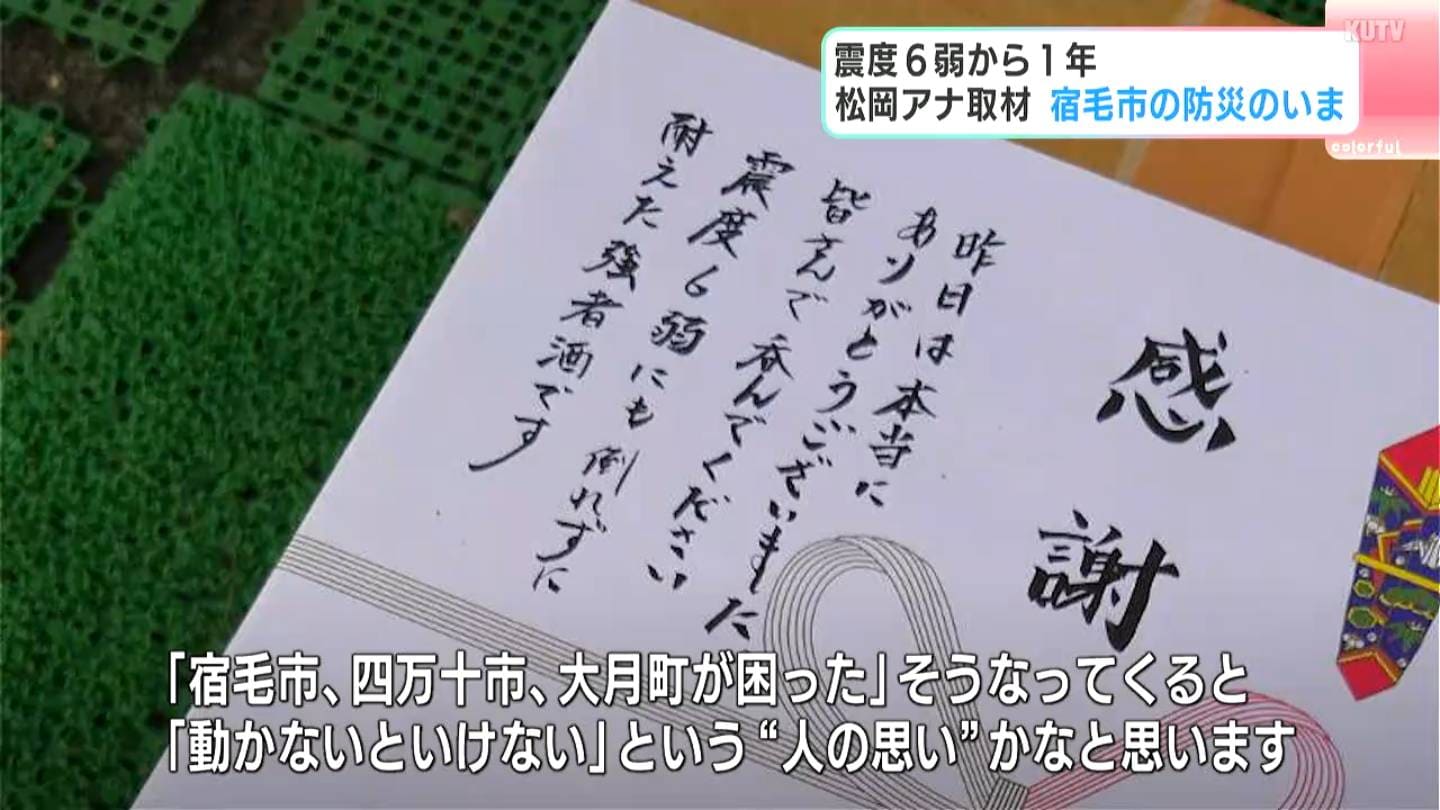 KUTV
震度６弱から１年
松岡アナ取材 宿毛市の防災のいま
colorful
感謝
昨日は本当に
ありがとうございました
皆さんで呑んでください
震度６弱にも倒れずに
耐えた強者酒です
「宿毛市、四万十市、大月町が困った」そうなってくると
「動かないといけない」という“人の思い”かなと思います